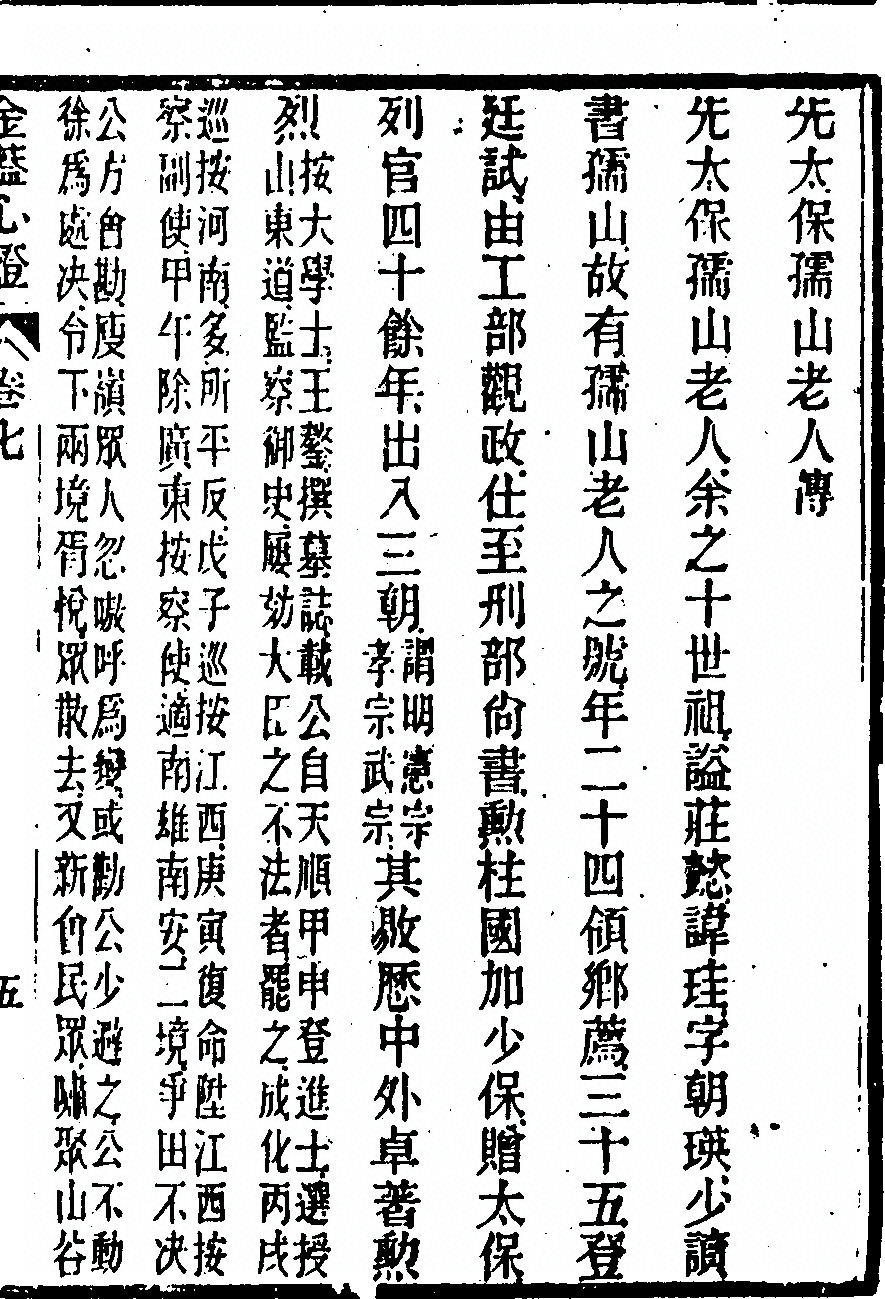 先太保孺山老人傳
先太保孺山老人余之十世祖謚莊懿諱珪字朝瑛少讀
書孺山故有孺山老人之號年二十四領鄉薦三十五登
廷試由工部觀政仕至刑部尙書勲柱國加少保贈太保
列官四十餘年出入三朝謂明憲宗
孝宗武宗其敭歷中外卓著勲
烈按大學士王鏊撰墓誌載公自天順甲申登進士選授
山東道監察御史屢劾大臣之不法者罷之成化丙戌
巡按河南多所平反戊子巡按江西庚寅復命陞江西按
察副使甲午除廣東按察使適南雄南安二境爭田不决
公方會勘庾嶺眾人忽嗷呼爲變或勸公少避之公不動
徐爲處决令下兩境胥悅眾散去又新會民眾嘯聚山谷
金蓋心燈 卷七 五